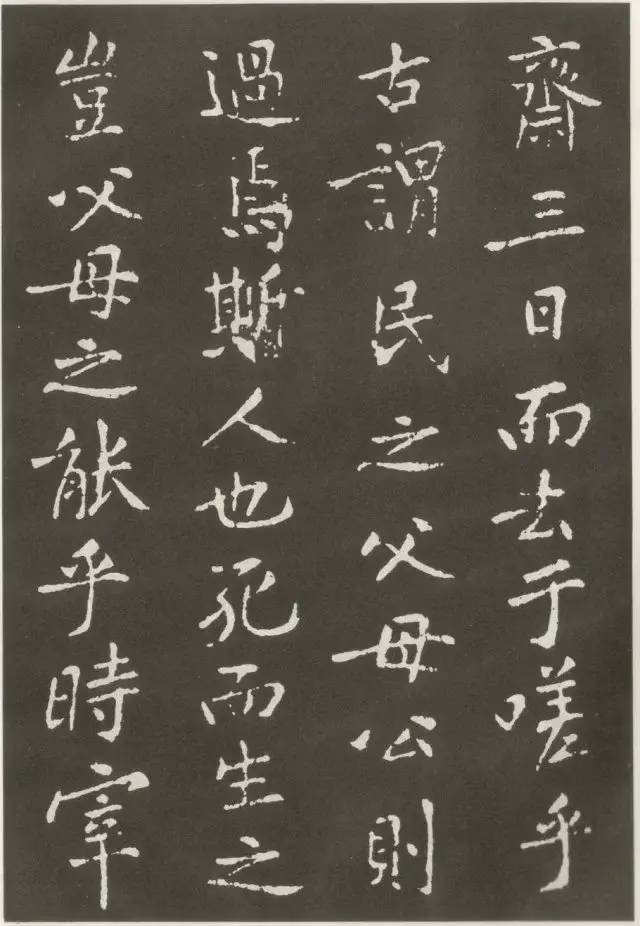 齋三日而去于嗟乎
古謂民之父母公則
過焉斯人也死而生之
豈父母之能乎時宰